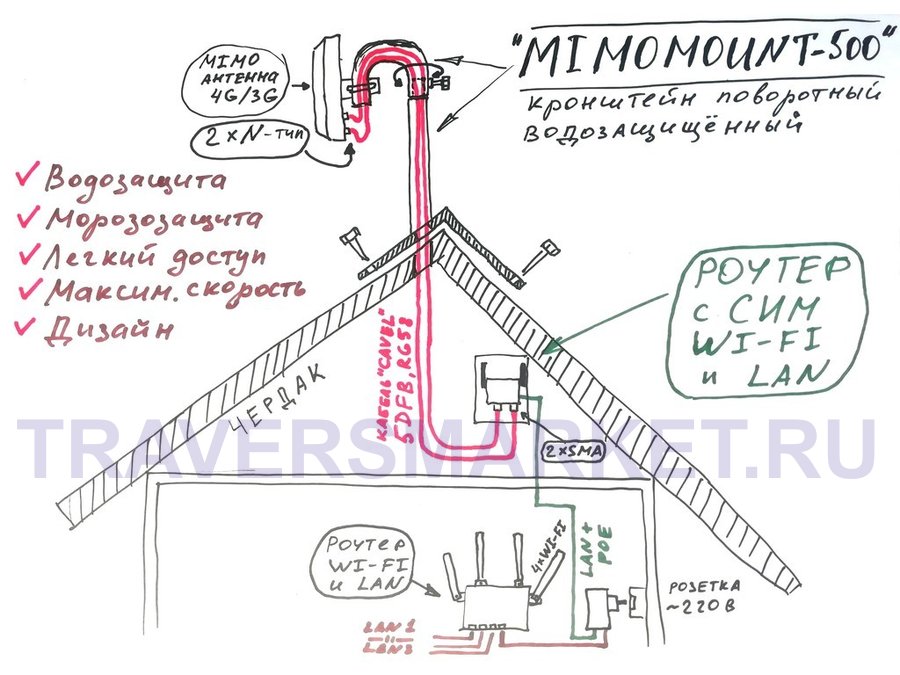 "MIMOMOUNT-500"
кронштейн поворотный
водозащищённый
MIMO
АНТЕННА
4G/3G
2xN-тип
Водозащита
Морозозащита
Легкий доступ
Максим. скорость
Дизайн
РОУТЕР
с СИМ
WI-FI
и LAN
КАБЕЛЬ "CAVEL"
5DFB, RG58
ЧЕРДАК
2xSMA
TRAVERSMARKET.RU
РОУТЕР
WI-FI
и LAN
4xWI-FI
LAN+
POE
РОЗЕТКА
~220В
LAN1
LAN3